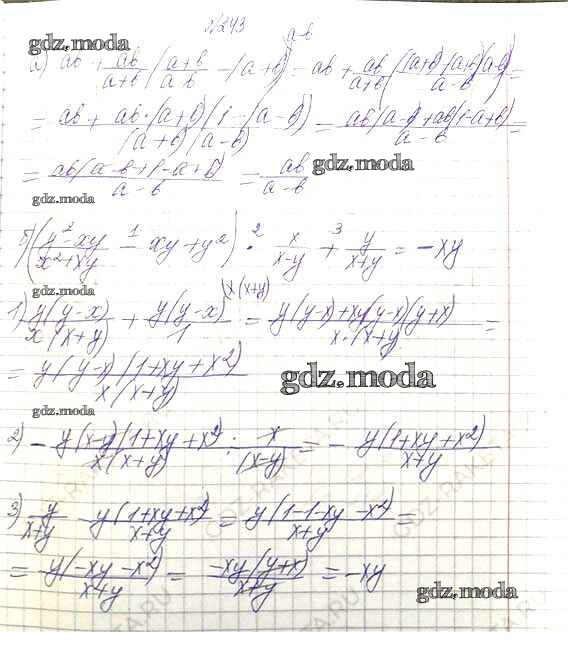 №243
gdz.moda
а) ab + ab/(a+b) ((a+b)/(a-b) - (a+b)) = ab + ab/(a+b) ((a+b) (a+b)(a-b))/(a-b) =
= ab + ab·(a+b)(1-(a-b))/((a+b)(a-b)) = (ab(a-b)+ab(1-a+b))/(a-b) =
gdz.moda
= ab(a-b+1-a+b)/(a-b) = ab/(a-b)
gdz.moda
б) ((y²-xy)/(x²+xy) - xy + y²) · x/(x-y) + y/(x+y) = -xy
gdz.moda
1) y(y-x)/(x(x+y)) + y(y-x)/1 = (y(y-x)+xy(y-x)(y+x))/(x·(x+y)) =
= y(y-x)(1+xy+x²)/(x(x+y))
gdz.moda
gdz.moda
2) - y(x-y)(1+xy+x²)/(x(x+y)) · x/(x-y) = - y(1+xy+x²)/(x+y)
3) y/(x+y) - y(1+xy+x²)/(x+y) = y(1-1-xy-x²)/(x+y) =
= y(-xy-x²)/(x+y) = -xy(y+x)/(x+y) = -xy
gdz.moda